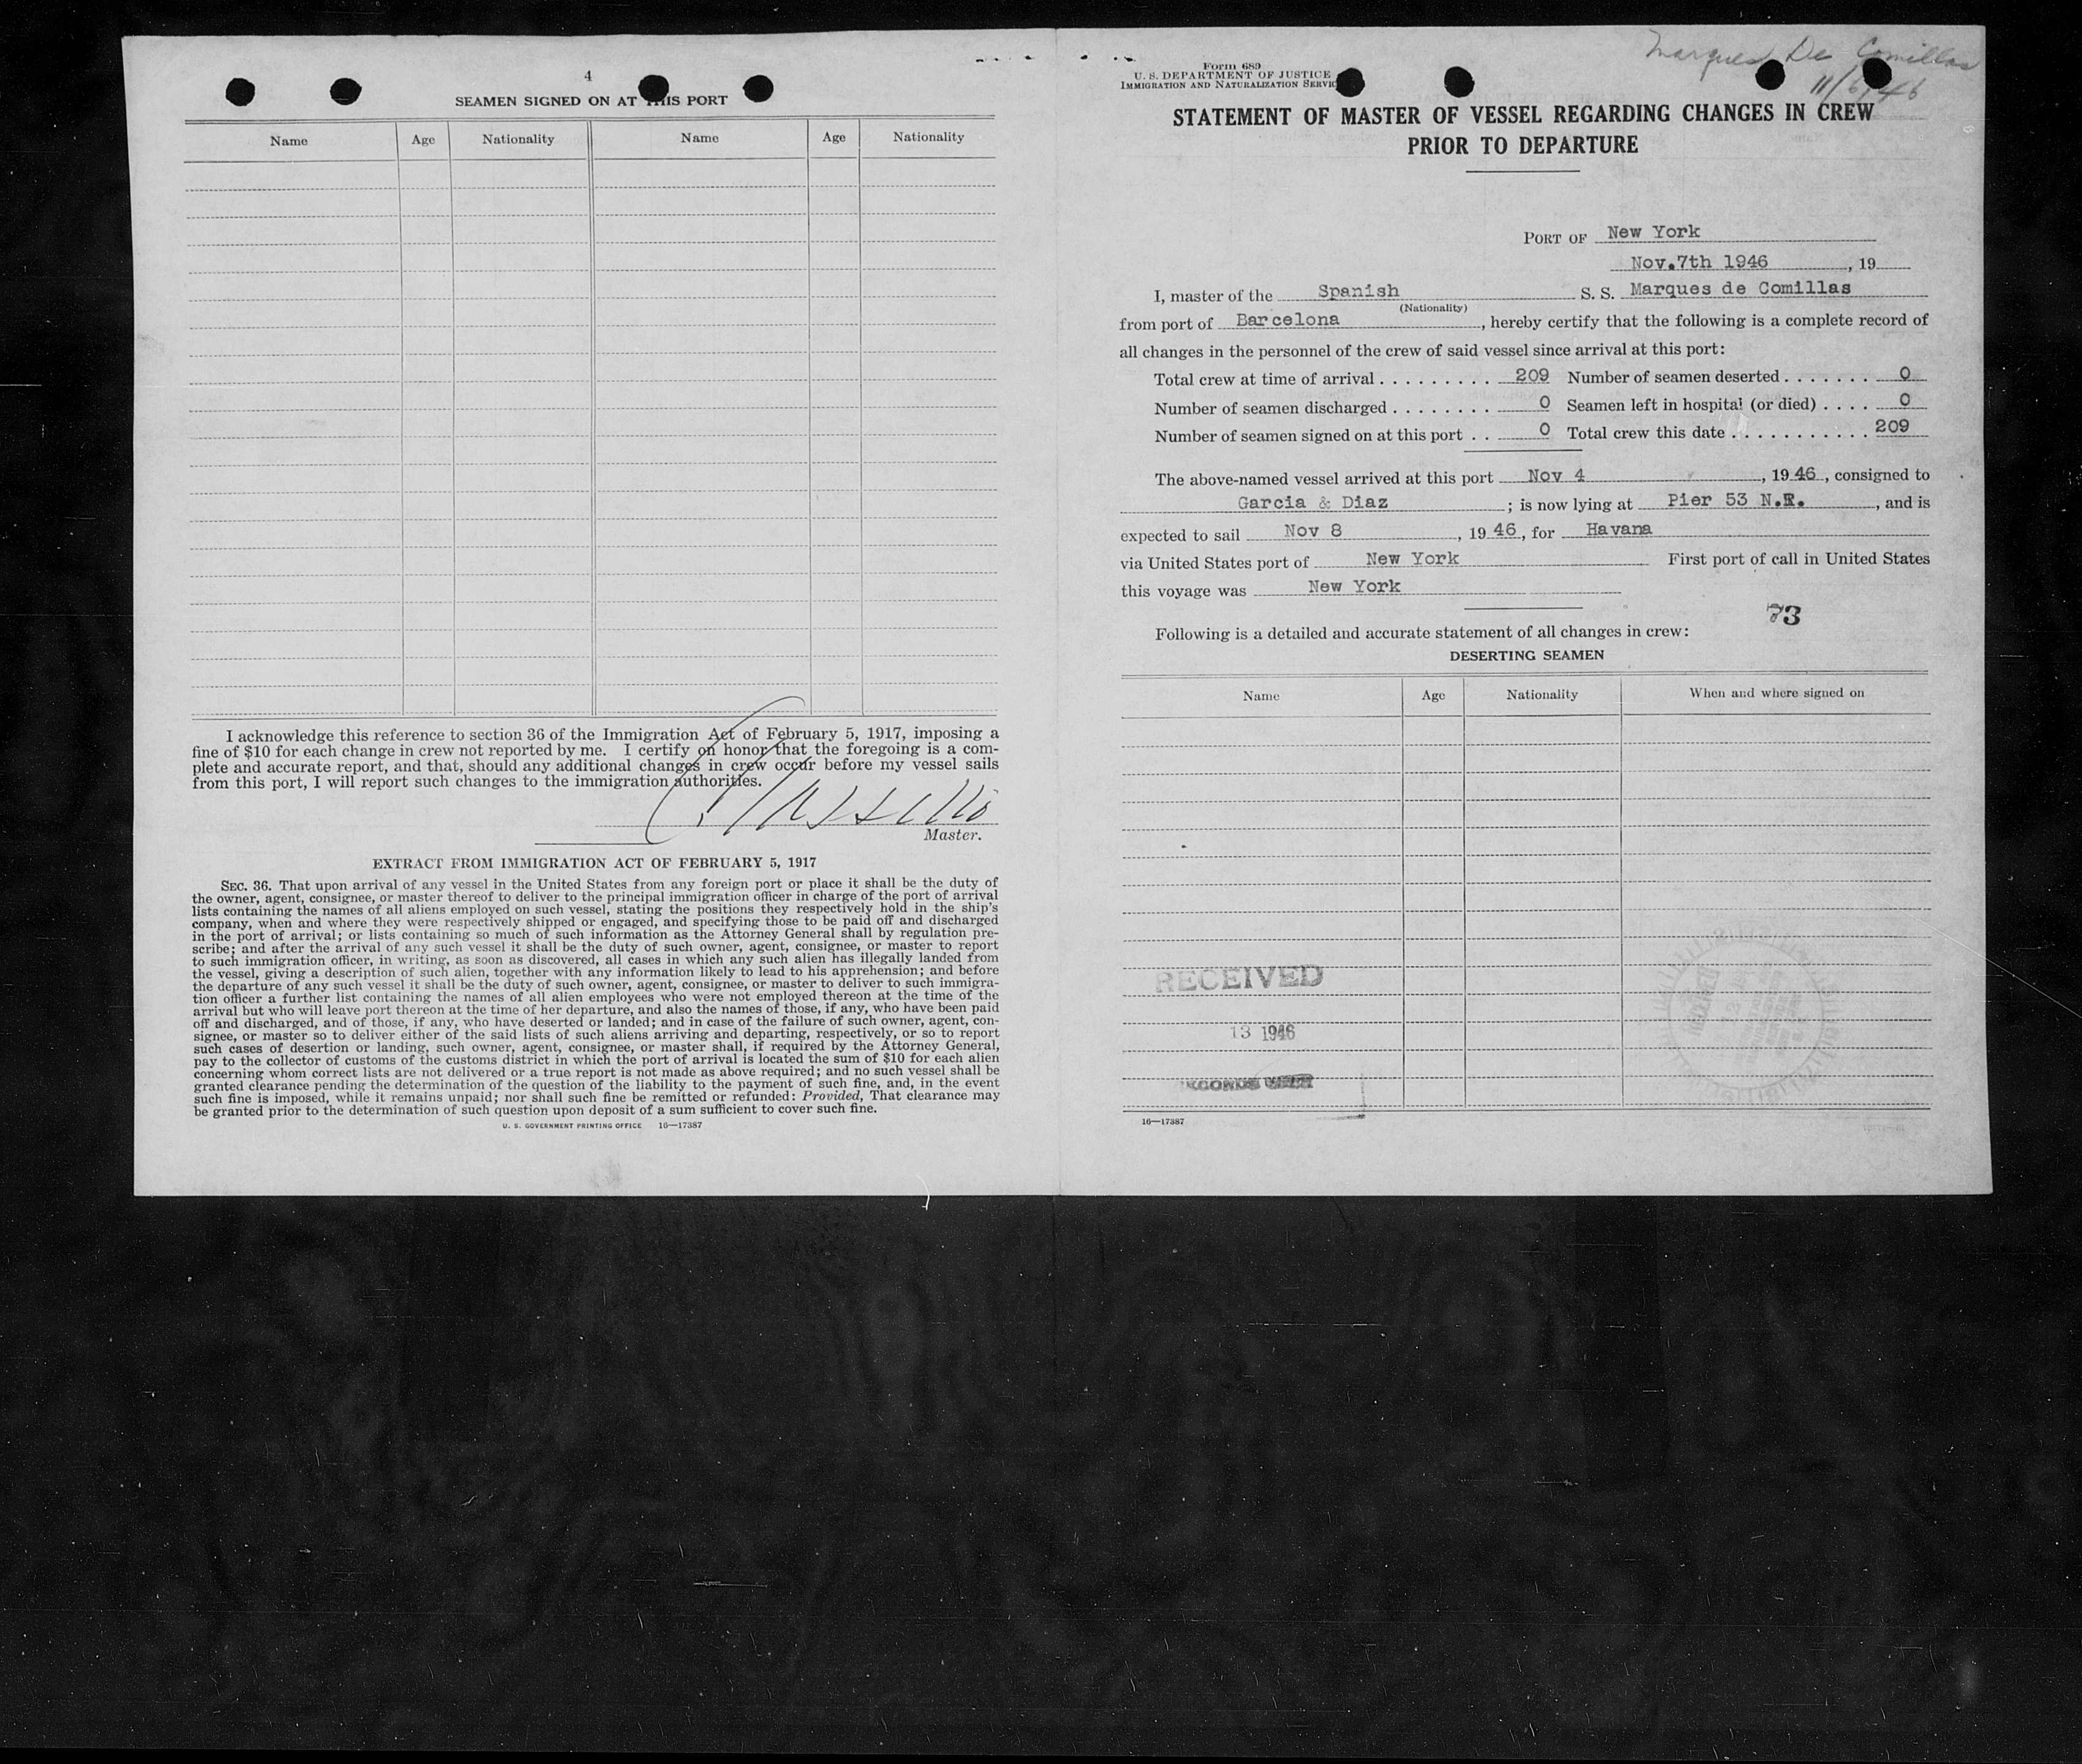 4
SEAMEN SIGNED ON AT THIS PORT
Name Age Nationality Name Age Nationality
I acknowledge this reference to section 36 of the Immigration Act of February 5, 1917, imposing a
fine of $10 for each change in crew not reported by me. I certify on honor that the foregoing is a com-
plete and accurate report, and that, should any additional changes in crew occur before my vessel sails
from this port, I will report such changes to the immigration authorities.
Master.
EXTRACT FROM IMMIGRATION ACT OF FEBRUARY 5, 1917
SEC. 36. That upon arrival of any vessel in the United States from any foreign port or place it shall be the duty of
the owner, agent, consignee, or master thereof to deliver to the principal immigration officer in charge of the port of arrival
lists containing the names of all aliens employed on such vessel, stating the positions they respectively hold in the ship's
company, when and where they were respectively shipped or engaged, and specifying those to be paid off and discharged
in the port of arrival; or lists containing so much of such information as the Attorney General shall by regulation pre-
scribe; and after the arrival of any such vessel it shall be the duty of such owner, agent, consignee, or master to report
to such immigration officer, in writing, as soon as discovered, all cases in which any such alien has illegally landed from
the vessel, giving a description of such alien, together with any information likely to lead to his apprehension; and before
the departure of any such vessel it shall be the duty of such owner, agent, consignee, or master to deliver to such immigra-
tion officer a further list containing the names of all alien employees who were not employed thereon at the time of the
arrival but who will leave port thereon at the time of her departure, and also the names of those, if any, who have been paid
off and discharged, and of those, if any, who have deserted or landed; and in case of the failure of such owner, agent, con-
signee, or master so to deliver either of the said lists of such aliens arriving and departing, respectively, or so to report
such cases of desertion or landing, such owner, agent, consignee, or master shall, if required by the Attorney General,
pay to the collector of customs of the customs district in which the port of arrival is located the sum of $10 for each alien
concerning whom correct lists are not delivered or a true report is not made as above required; and no such vessel shall be
granted clearance pending the determination of the question of the liability to the payment of such fine, and, in the event
such fine is imposed, while it remains unpaid; nor shall such fine be remitted or refunded: Provided, That clearance may
be granted prior to the determination of such question upon deposit of a sum sufficient to cover such fine.
U. S. GOVERNMENT PRINTING OFFICE 16—17387
Marques De Comillas
11/6/46
Form 689
U. S. DEPARTMENT OF JUSTICE
IMMIGRATION AND NATURALIZATION SERVICE
STATEMENT OF MASTER OF VESSEL REGARDING CHANGES IN CREW
PRIOR TO DEPARTURE
PORT OF New York
Nov.7th 1946, 19
I, master of the Spanish S. S. Marques de Comillas
(Nationality)
from port of Barcelona, hereby certify that the following is a complete record of
all changes in the personnel of the crew of said vessel since arrival at this port:
Total crew at time of arrival . . . . . . . . . 209 Number of seamen deserted . . . . . . . 0
Number of seamen discharged . . . . . . . . 0 Seamen left in hospital (or died) . . . . 0
Number of seamen signed on at this port . . 0 Total crew this date . . . . . . . . . . . 209
The above-named vessel arrived at this port Nov 4, 1946, consigned to
Garcia & Diaz; is now lying at Pier 53 N.R., and is
expected to sail Nov 8, 1946, for Havana
via United States port of New York First port of call in United States
this voyage was New York
73
Following is a detailed and accurate statement of all changes in crew:
DESERTING SEAMEN
Name Age Nationality When and where signed on
RECEIVED
13 1946
16—17387